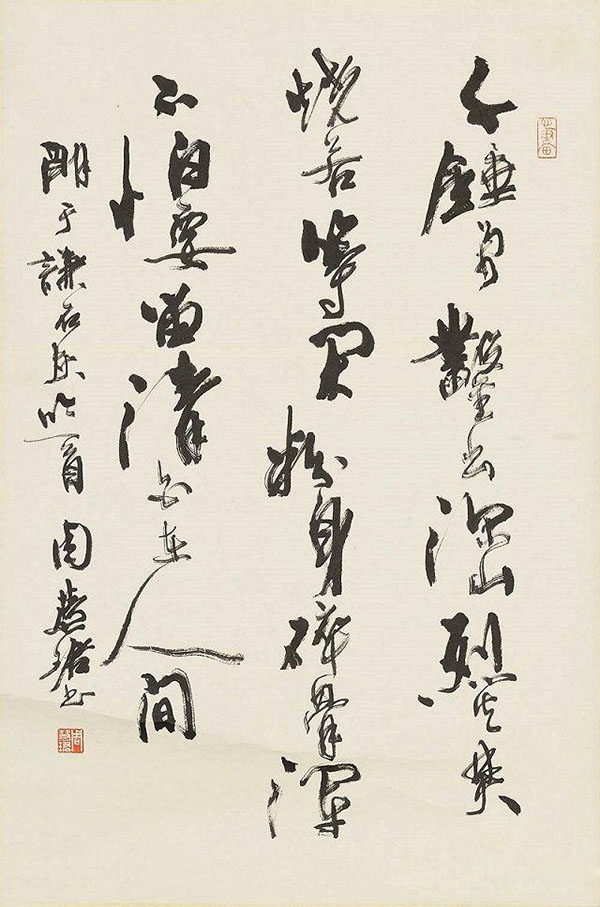 千錘万鑿出深山烈火焚
烧若等闲粉身碎骨浑
不怕要留清白在人间
明于謙石灰吟一首 周慧珺书